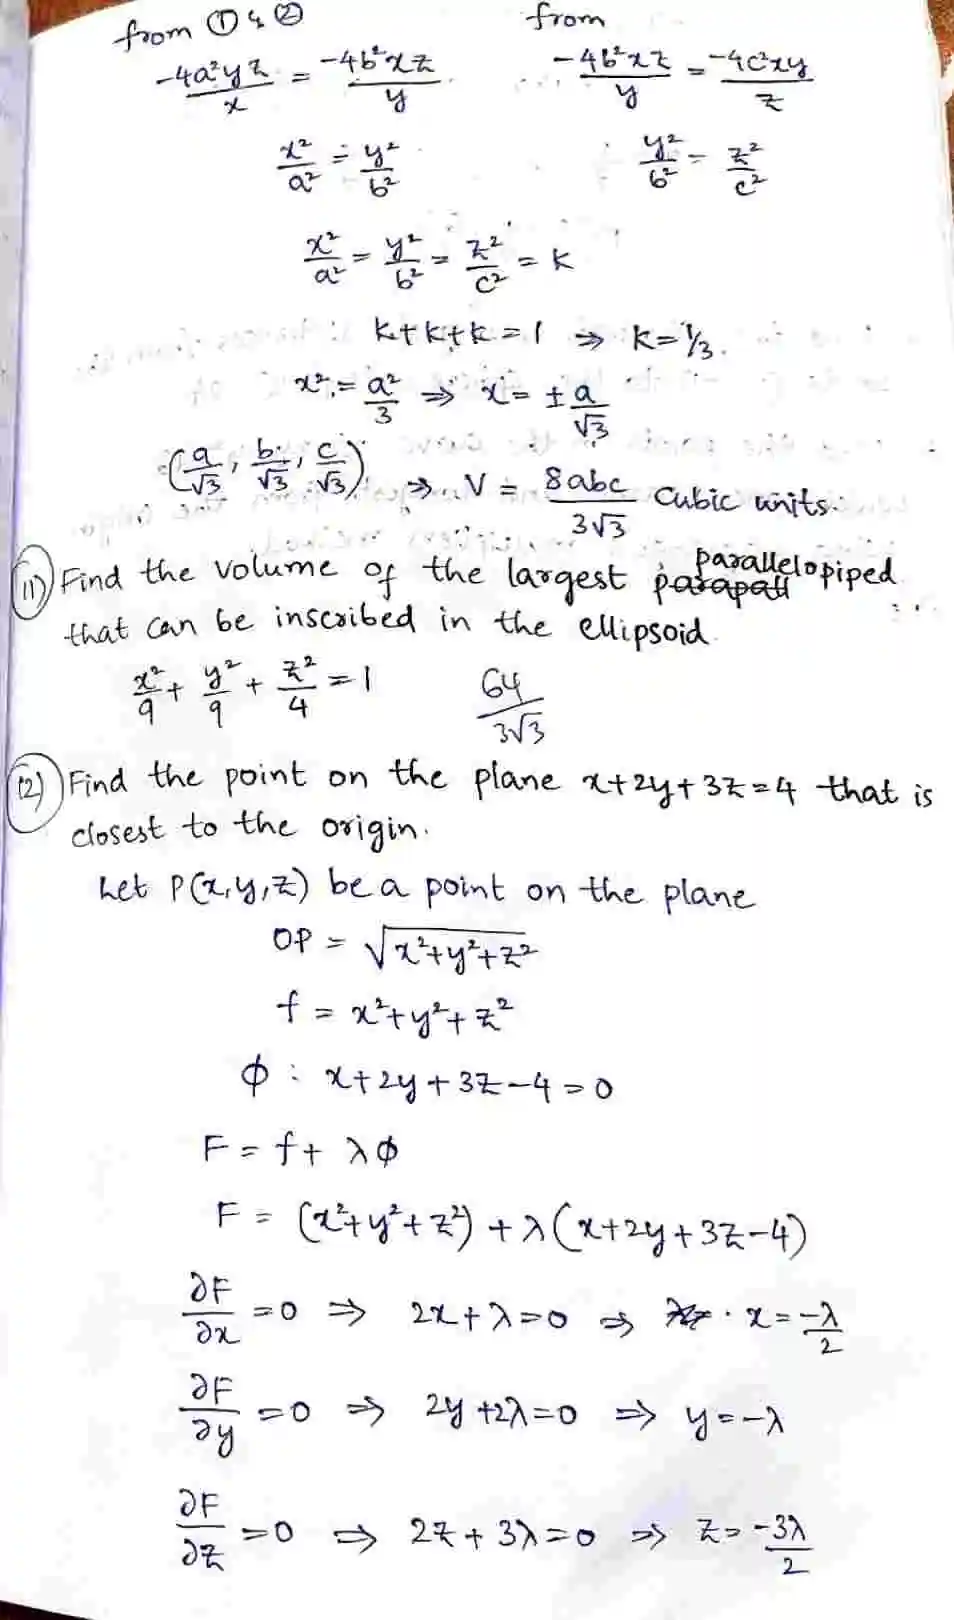 from ① & ②
from
-4a²yz/x = -4b²xz/y
-4b²xz/y = -4c²xy/z
x²/a² = y²/b²
y²/b² = z²/c²
x²/a² = y²/b² = z²/c² = k
k+k+k=1 ⇒ k=1/3.
x² = a²/3 ⇒ x = ±a/√3
(a/√3, b/√3, c/√3) ⇒ V = 8abc/3√3 Cubic units.
11) Find the volume of the largest parallelopiped
that can be inscribed in the ellipsoid.
x²/9 + y²/9 + z²/4 = 1
64/3√3
12) Find the point on the plane x+2y+3z=4 that is
closest to the origin.
Let P(x,y,z) be a point on the plane
OP = √x²+y²+z²
f = x²+y²+z²
ϕ : x+2y+3z-4=0
F = f+ λϕ
F = (x²+y²+z²) + λ(x+2y+3z-4)
∂F/∂x =0 ⇒ 2x+λ=0 ⇒ x=-λ/2
∂F/∂y =0 ⇒ 2y+2λ=0 ⇒ y=-λ
∂F/∂z =0 ⇒ 2z+3λ=0 ⇒ z=-3λ/2